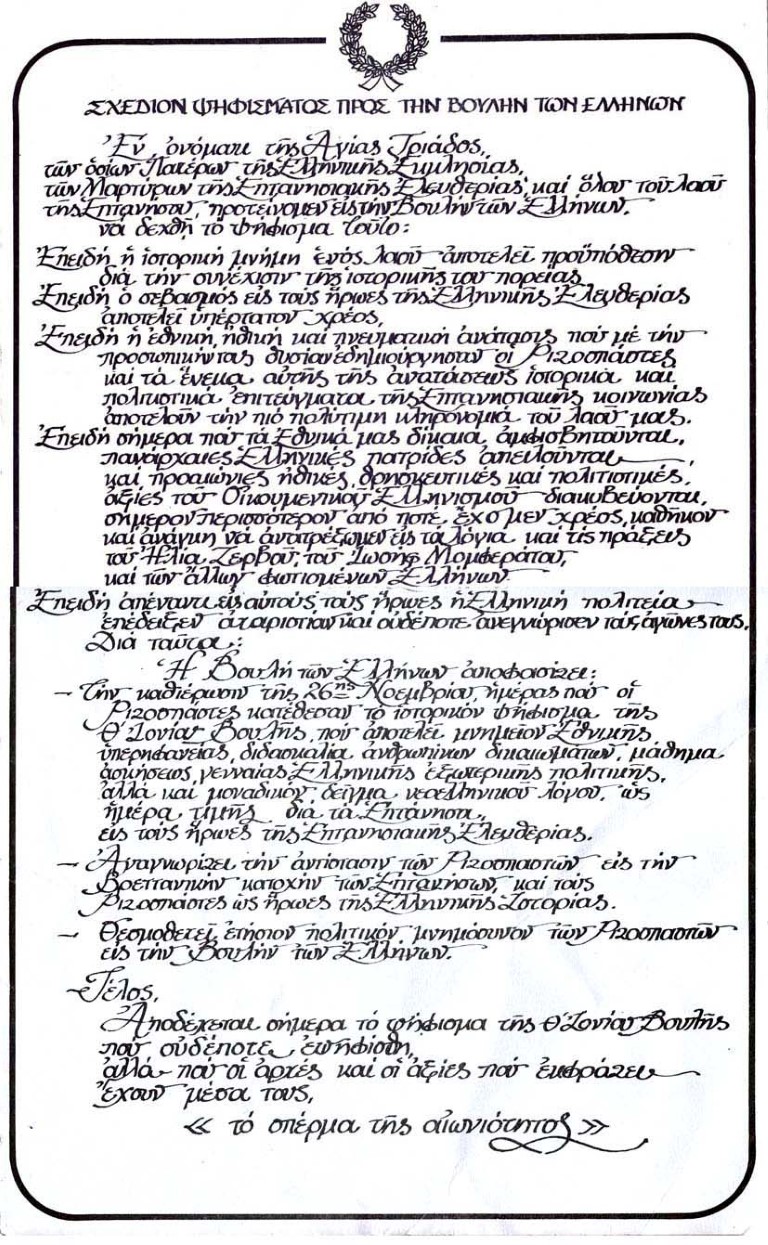 ΣΧΕΔΙΟΝ ΨΗΦΙΣΜΑΤΟΣ ΠΡΟΣ ΤΗΝ ΒΟΥΛΗΝ ΤΩΝ ΕΛΛΗΝΩΝ
Ἐν ὀνόματι τῆς Ἁγίας Τριάδος,
τῶν ὁσίων Πατέρων τῆς Ἑλληνικῆς Ἐκκλησίας,
τῶν Μαρτύρων τῆς Ἑπτανησιακῆς Ἐλευθερίας, καί ὅλου τοῦ λαοῦ
τῆς Ἑπτανήσου, προτείνομεν εἰς τήν Βουλήν τῶν Ἑλλήνων,
νά δεχθῆ τό ψήφισμα τοῦτο:
Ἐπειδή ἡ ἱστορική μνήμη ἑνός λαοῦ ἀποτελεῖ προϋπόθεσιν
διά τήν συνέχισιν τῆς ἱστορικῆς του πορείας
Ἐπειδή ὁ σεβασμός εἰς τούς ἥρωες τῆς Ἑλληνικῆς Ἐλευθερίας
ἀποτελεῖ ὑπέρτατον χρέος,
Ἐπειδή ἡ ἐθνική, ἠθική καί πνευματική ἀνάτασις πού μέ τήν
προσωπικήν τας θυσίαν ἐδημιούργησαν οἱ Ριζοσπάστες
καί τά ἕνεκα αὐτῆς τῆς ἀνατάσεως ἱστορικά καί
πολιτιστικά ἐπιτεύγματα τῆς Ἑπτανησιακῆς κοινωνίας
ἀποτελοῦν τήν πιό πολύτιμη κληρονομιά τοῦ λαοῦ μας.
Ἐπειδή σήμερα πού τά Ἐθνικά μας δίκαια ἀμφισβητοῦνται,
πανάρχαιες Ἑλληνικές πατρίδες ἀπειλοῦνται,
καί προαιώνιες ἠθικές, θρησκευτικές καί πολιτιστικές,
ἀξίες τοῦ Οἰκουμενικοῦ Ἑλληνισμοῦ διακυβεύονται,
σήμερον περισσότερον ἀπό ποτέ, ἔχομεν χρέος, καθῆκον
καί ἀνάγκη νά ἀνατρέξωμεν εἰς τά λόγια καί τίς πράξεις
τοῦ Ἠλία Ζερβοῦ, τοῦ Ἰωσήφ Μομφεράτου,
καί τῶν ἄλλων φωτισμένων Ἑλλήνων.
Ἐπειδή ἀπέναντι εἰς αὐτούς τούς ἥρωες ἡ Ἑλληνική πολιτεία
ἐπέδειξεν ἀχαριστίαν καί οὐδέποτε ἀνεγνώρισεν τούς ἀγῶνες τους,
Διά ταῦτα:
Ἡ Βουλή τῶν Ἑλλήνων ἀποφασίζει:
— Τήν καθιέρωσιν τῆς 26ης Νοεμβρίου, ἡμέρας πού οἱ
Ριζοσπάστες κατέθεσαν τό ἱστορικόν ψήφισμα τῆς
Θ' Ἰονίου Βουλῆς, πού ἀποτελεῖ μνημεῖον Ἐθνικῆς
ὑπερηφανείας, διδασκαλία ἀνθρωπίνων δικαιωμάτων, μάθημα
ἀσκήσεως, γενναίας Ἑλληνικῆς ἐξωτερικῆς πολιτικῆς,
ἀλλά καί μοναδικόν δεῖγμα νεοελληνικοῦ λόγου, ὡς
ἡμέρα τιμῆς διά τά Ἑπτάνησα,
εἰς τούς ἥρωες τῆς Ἑπτανησιακῆς Ἐλευθερίας.
— Ἀναγνωρίζει τήν ἀντίστασιν τῶν Ριζοσπαστῶν εἰς τήν
Βρεττανικήν κατοχήν τῶν Ἑπτανήσων, καί τούς
Ριζοσπάστες ὡς ἥρωες τῆς Ἑλληνικῆς Ἱστορίας.
— Θεσμοθετεῖ, ἐτήσιον πολιτικόν μνημόσυνον τῶν Ριζοσπαστῶν
εἰς τήν Βουλήν τῶν Ἑλλήνων.
— Τέλος,
Ἀποδέχεται σήμερα τό ψήφισμα τῆς Θ' Ἰονίου Βουλῆς
πού οὐδέποτε ἐψηφίσθη,
ἀλλά πού οἱ ἀρχές καί οἱ ἀξίες πού ἐκφράζει
ἔχουν μέσα τους,
« τό σπέρμα τῆς αἰωνιότητος »